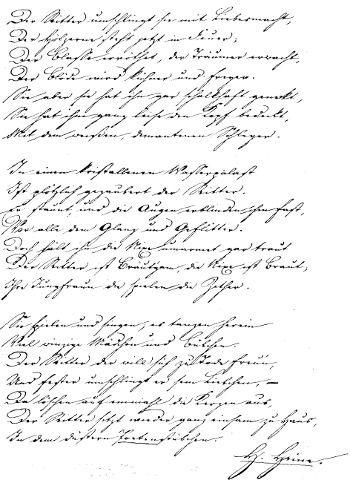 Der Ritter umschlingt sie mit Liebesmacht,
Der Hölzerne steht jetzt in Feuer;
Der Blasse erröthet, der Träumer erwacht,
Der Blöde wird kühner und freyer.
Sie aber sie hat ihn gar schalkhaft geneckt,
Sie hat ihm ganz leise den Kopf bedeckt
Mit dem weißen, demantenen Schleyer.

In einen kristallenen Wasserpalast
Ist plötzlich gezaubert der Ritter.
Er staunt, und die Augen erblinden ihm fast,
Vor alle dem Glanz und Geflitter.
Doch hält ihn die Nixe umarmet gar traut,
Der Ritter ist Bräutgam, die Nixe ist Braut,
Ihre Jungfraun die spielen die Zither.

Sie spielen und singen, es tanzen herein
Viel winzige Mädchen und Bübchen.
Der Ritter der will sich zu Tode freun,
Und fester umschlingt er sein Liebchen, –
Da löschen auf einmahl die Kerzen aus,
Der Ritter sitzt wieder ganz einsam zu Haus,
In dem düstern Poetenstübchen.
H. Heine.